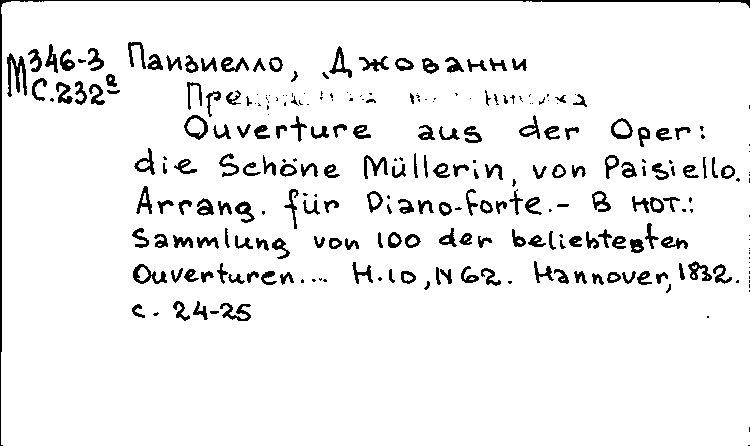 М 346-3 Паизиелло, Джованни
С.232а Прекрасная мельничиха
Ouverture aus der Oper:
die Schöne Müllerin, von Paisiello.
Arrang. für Piano-forte. - В нот.:
Sammlung von 100 der beliebtesten
Ouverturen... H.10, N 62. Hannover, 1832.
с. 24-25